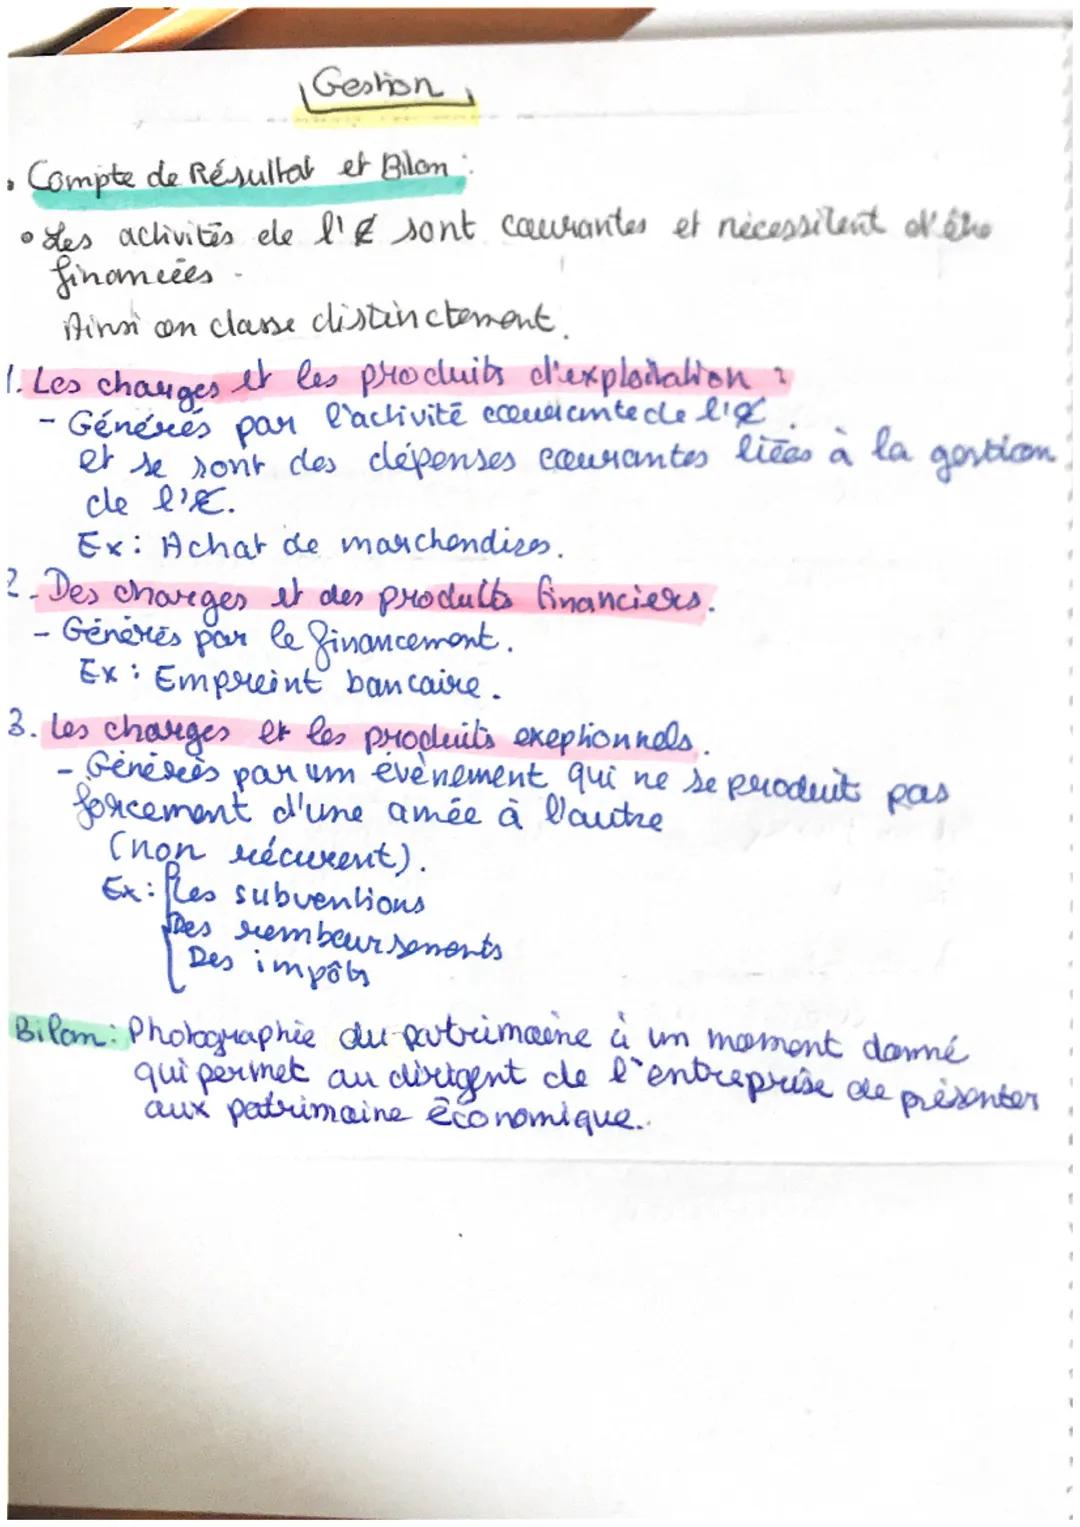 Gestion
• Compte de Résultat et Bilan :
• Les activités de l'E sont courantes et nécessitent d'être
financées.
Ainsi on classe distinctement.
1. Les charges et les produits d'exploitation :
- Générés par l'activité courante de l'E.
et se sont des dépenses courantes liées à la gestion
de l'E.
Ex : Achat de marchandises.
2. Des charges et des produits financiers.
- Générés par le financement.
Ex : Empreint bancaire.
3. Les charges et les produits exeptionnels.
- Générés par um évènement qui ne se produit pas
forcement d'une année à l'autre
(non récurent).
Ex : Les subventions
Des remboursements
Des impôts
Bilan : Photographie du patrimoine à un moment donné
qui permet au dirigent de l'entreprise de présenter
aux patrimoine économique.